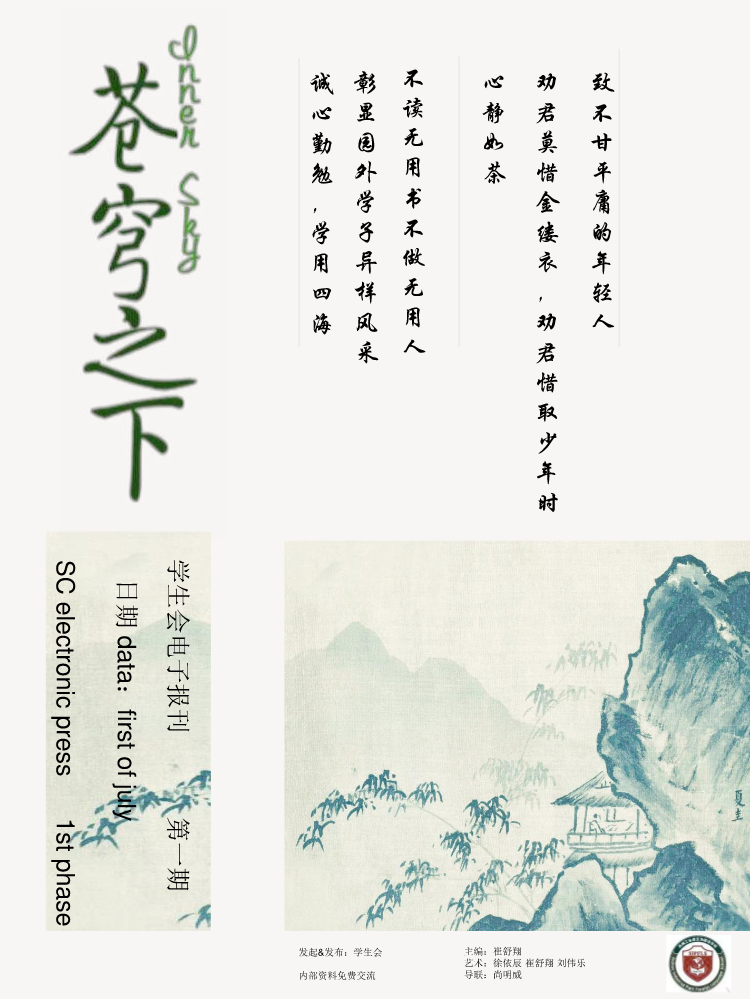 苍穹之下
Inner Sky
致不甘平庸的年轻人
劝君莫惜金缕衣，劝君惜取少年时
心静如茶
不读无用书不做无用人
彰显园外学子异样风采
诚心勤勉，学用四海
学生会电子报刊 第一期
日期 data： first of july
SC electronic press 1st phase
夏圭
发起&发布：学生会
内部资料免费交流
主编：崔舒翔
艺术：徐依辰 崔舒翔 刘伟乐
导联：尚明威